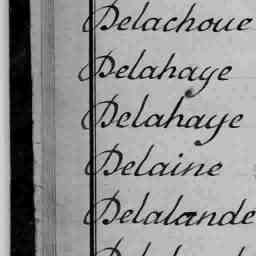 Delachoue
Delahaye
Delahaye
Delaine
Delalande